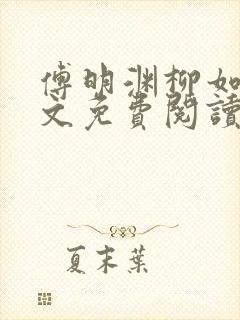 傅明渊柳如
文免費閱讀
夏末葉